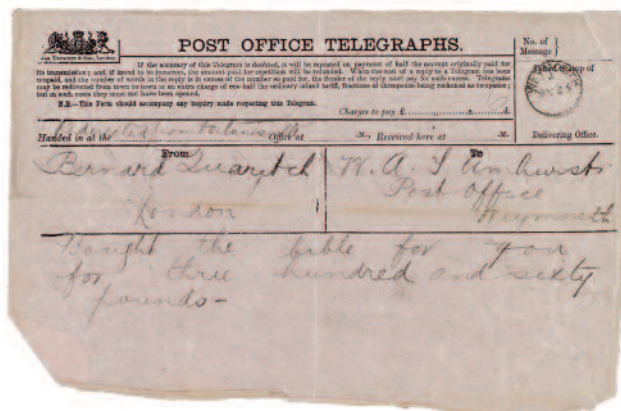 POST OFFICE TELEGRAPHS.
No. of
Message
If the accuracy of this Telegram is doubted, it will be repeated on payment of half the amount originally paid for
its transmission; and, if found to be incorrect, the amount paid for repetition will be refunded. When the cost of a reply to a Telegram has been
prepaid, and the number of words in the reply is in excess of the number so paid for, the Sender of the reply must pay for such excess. Telegrams
may be redirected from town to town at an extra charge of one-half the ordinary inland tariff, fractions of threepence being reckoned as threepence;
but in such cases they must not have been opened.
N.B.—This Form should accompany any inquiry made respecting this Telegram.
Dated Stamp of
Charges to pay £ s. d.
Handed in at the Office at .M., Received here at .M.
Delivering Office.
From
Bernard Quaritch
London
To
W. A. T Amhurst
Post Office
Weymouth
Bought the bible for you
for three hundred and sixty
pounds—